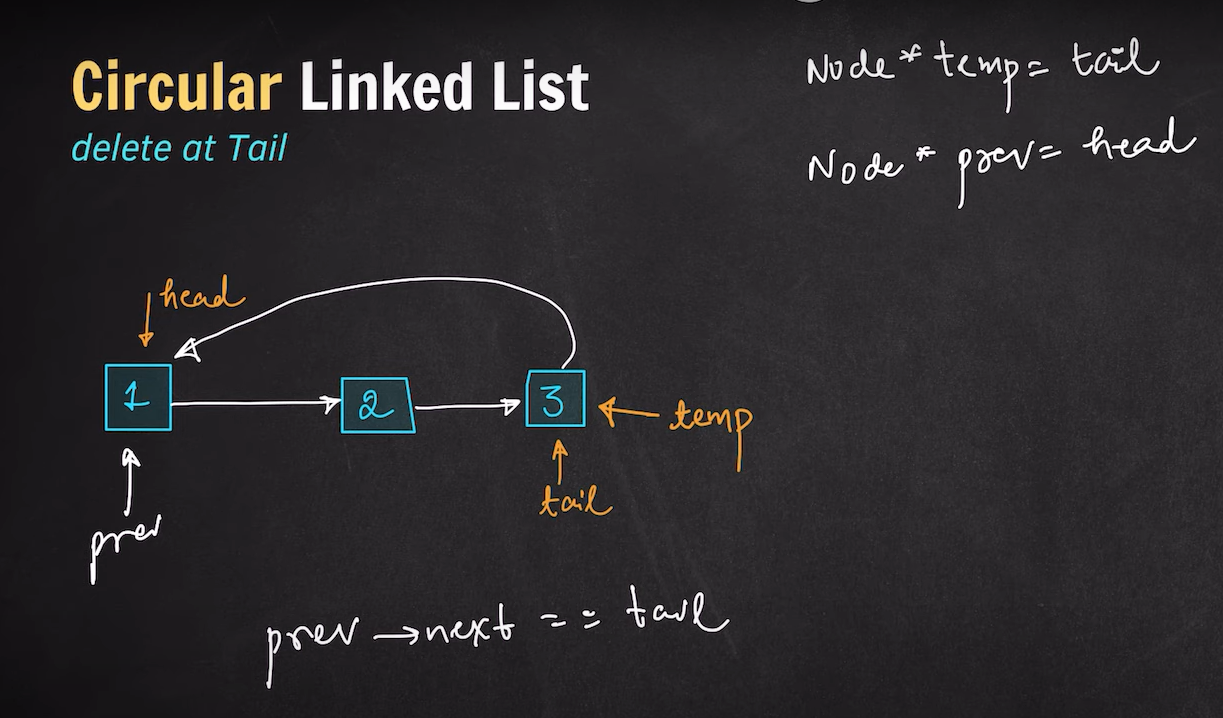 Circular Linked List
delete at Tail
Node* temp = tail
Node* prev = head
head
1
2
3
temp
tail
prev
prev → next == tail